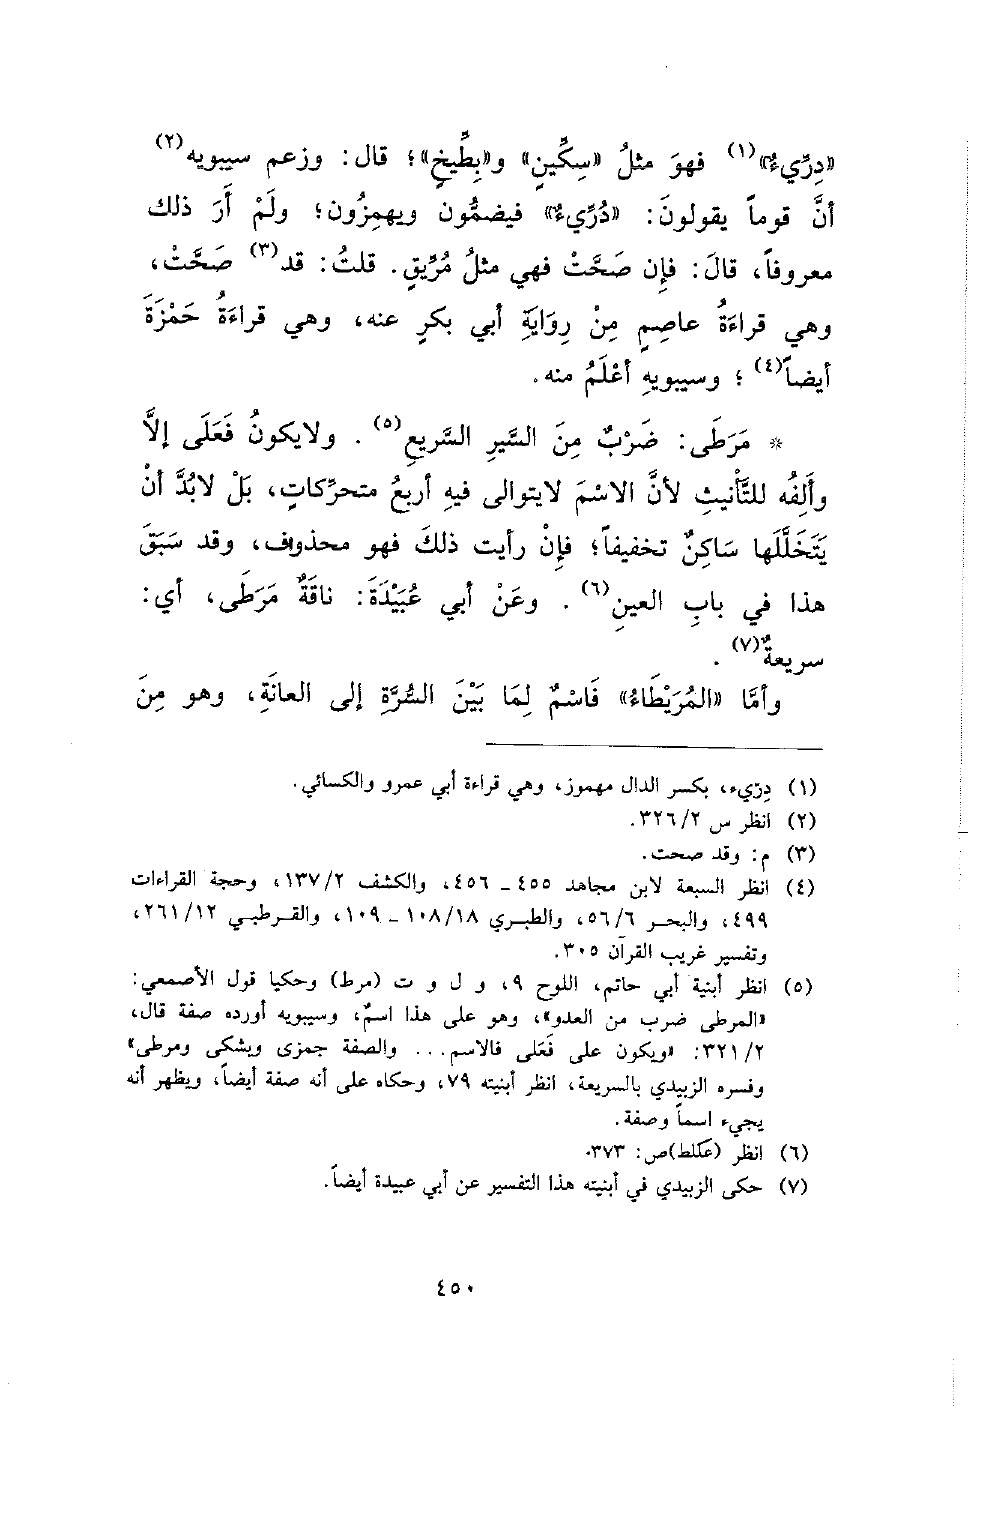 «دِرِّيءٌ»(١) فهوَ مثلُ «سِكِّينٍ» و«بِطِّيخٍ»؛ قال: وزعم سيبويه(٢)
أنَّ قوماً يقولونَ: «دُرِّيءٌ» فيضمُّون ويهمِزُون؛ ولَمْ أَرَ ذلك
معروفاً، قالَ: فإن صَحَّتْ فهي مثلُ مُرِّيقٍ. قلتُ: قد(٣) صَحَّتْ،
وهي قراءَةُ عاصِمٍ مِنْ رِوَايَةِ أبي بكرٍ عنه، وهي قراءَةُ حَمْزَةَ
أيضاً(٤) ؛ وسيبويهِ أعْلَمُ منه.
* مَرَطَى: ضَرْبٌ مِنَ السَّيرِ السَّريعِ(٥) . ولايكونُ فَعَلَى إلاَّ
وأَلِفُه للتَّأْنيثِ لأنَّ الاسْمَ لايتوالى فيهِ أربعُ متحرِّكاتٍ، بَلْ لابُدَّ أنْ
يَتَخَلَّلَها سَاكِنٌ تخفيفاً؛ فإنْ رأيت ذلكَ فهو محذوف، وقد سَبَقَ
هذا في بابِ العينِ(٦) . وعَنْ أبي عُبَيْدَةَ: ناقَةٌ مَرَطَى، أي:
سريعةٌ(٧) .
وأمَّا «المُرَيْطَاءُ» فَاسْمٌ لِمَا بَيْنَ السُّرَّةِ إلى العانَةِ، وهو مِنَ
(١) دِرّيء، بكسر الدال مهموز، وهي قراءة أبي عمرو والكسائي.
(٢) انظر س ٣٢٦/٢.
(٣) م: وقد صحت.
(٤) انظر السبعة لابن مجاهد ٤٥٥ ـ ٤٥٦، والكشف ١٣٧/٢، وحجة القراءات
٤٩٩، والبحر ٥٦/٦، والطبري ١٠٨/١٨ ـ ١٠٩، والقرطبي ٢٦١/١٢،
وتفسير غريب القرآن ٣٠٥.
(٥) انظر أبنية أبي حاتم، اللوح ٩، و ل و ت (مرط) وحكيا قول الأصمعي:
«المرطى ضرب من العدو»، وهو على هذا اسمٌ، وسيبويه أورده صفة قال،
٣٢١/٢: «ويكون على فَعَلى فالاسم... والصفة جمزى وبشكى ومرطى»
وفسره الزبيدي بالسريعة، انظر أبنيته ٧٩، وحكاه على أنه صفة أيضاً، ويظهر أنه
يجيء اسماً وصفة.
(٦) انظر (عكلط)ص: ٣٧٣.
(٧) حكى الزبيدي في أبنيته هذا التفسير عن أبي عبيدة أيضاً.
٤٥٠